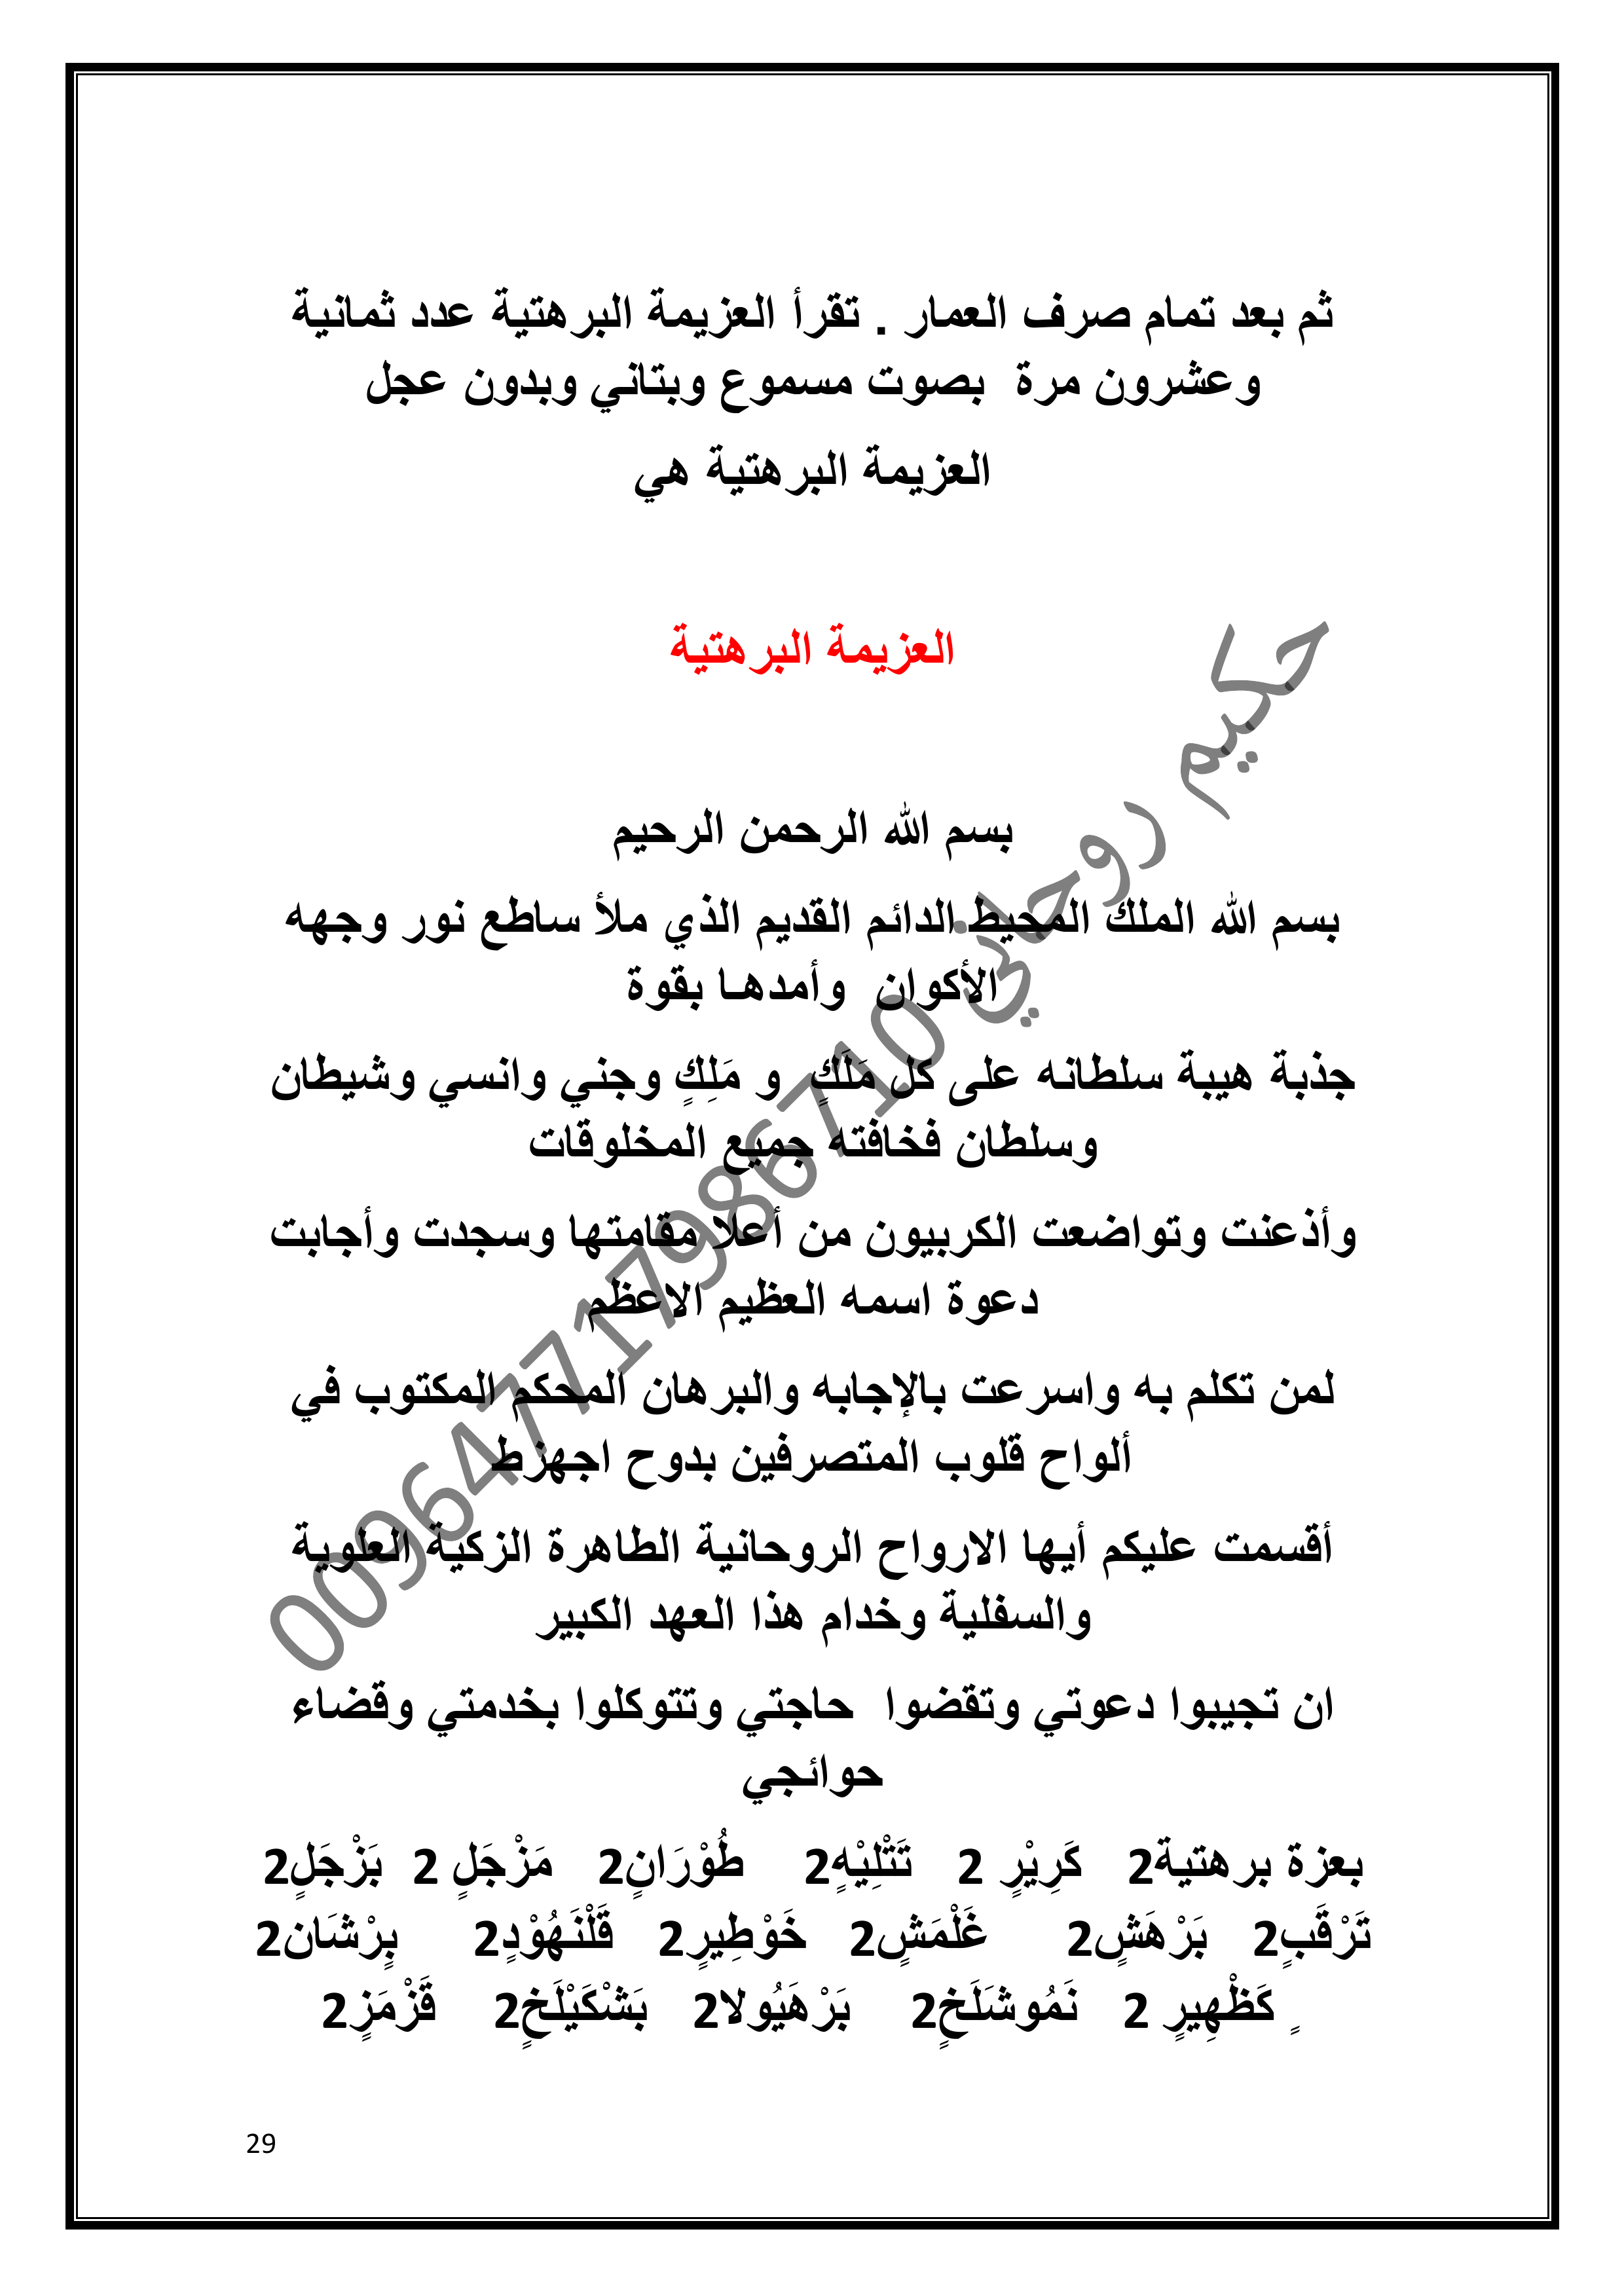 ثم بعد تمام صرف العمار . تقرأ العزيمة البرهتية عدد ثمانية
وعشرون مرة  بصوت مسموع وبتاني وبدون عجل
العزيمة البرهتية هي
العزيمة البرهتية
بسم الله الرحمن الرحيم
بسم الله الملك المحيط الدائم القديم الذي ملأ ساطع نور وجهه
الأكوان  وأمدهـا بقوة
جذبة هيبة سلطانه على كل مَلَكٍ  و مَلِكٍ وجني وانسي وشيطان
وسلطان فخافته جميع المخلوقات
وأذعنت وتواضعت الكربيون من أعلا مقامتها وسجدت وأجابت
دعوة اسمه العظيم الاعظم
لمن تكلم به واسرعت بالإجابه والبرهان المحكم المكتوب في
ألواح قلوب المتصرفين بدوح اجهزط
أقسمت عليكم أيها الارواح الروحانية الطاهرة الزكية العلوية
والسفلية وخدام هذا العهد الكبير
ان تجيبوا دعوتي وتقضوا  حاجتي وتتوكلوا بخدمتي وقضاء
حوائجي
بعزة برهتية2   كَرِيْرٍ 2   تَتْلِيْهٍ2   طُوْرَانٍ2   مَزْجَلٍ 2  بَزْجَلٍ2
تَرْقَبٍ2   بَرْهَشٍ2   غَلْمَشٍ2   خَوْطِيرٍ2   قَلْنَهُوْدٍ2   بِرْشَان2
ٍ كَظْهِيرٍ 2   نَمُوشَلَخٍ2   بَرْهَيُولا2   بَشْكَيْلَخٍ2   قَزْمَزٍ2
حكيم روحاني 009647717986710
29